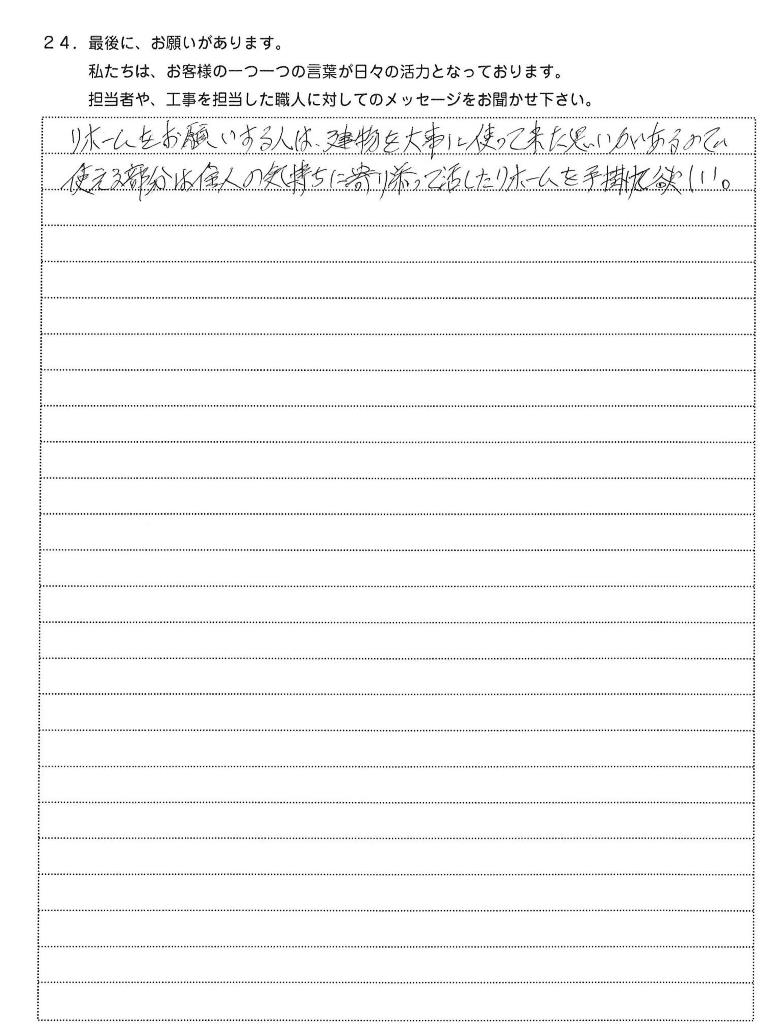 24．最後に、お願いがあります。
私たちは、お客様の一つ一つの言葉が日々の活力となっております。
担当者や、工事を担当した職人に対してのメッセージをお聞かせ下さい。
リホームをお願いする人は、建物を大事に使って来た思いがあるので
使える部分は住人の気持ちに寄り添って活したリホームを手掛て欲しい。